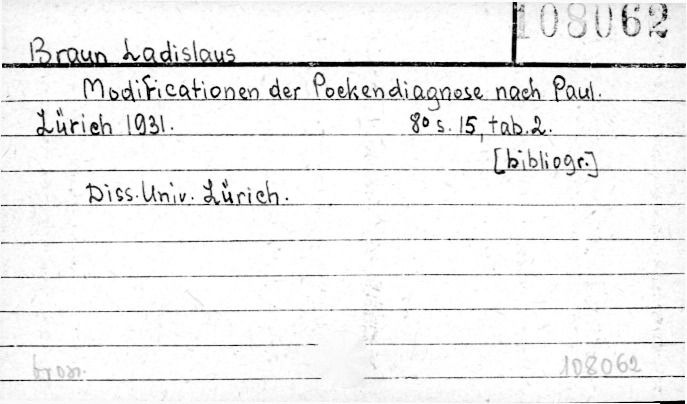 108062
Braun Ladislaus
Modificationen der Pockendiagnose nach Paul.
Zürich 1931. 8o s. 15, tab. 2.
[bibliogr.]
Diss. Univ. Zürich.
brosz. 108062